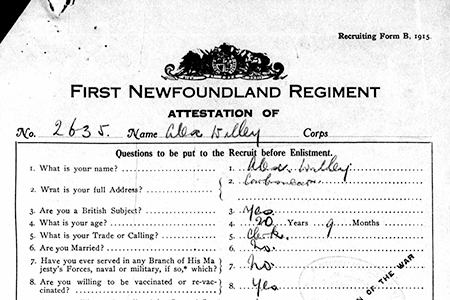 Recruiting Form B, 1915.
FIRST NEWFOUNDLAND REGIMENT
ATTESTATION OF
No. 2635. Name Alex Willey Corps
Questions to be put to the Recruit before Enlistment.
1. What is your name? 1. Alex. Willey
2. What is your full Address? 2. Carbonear
3. Are you a British Subject? 3. Yes
4. What is your age? 4. 20 Years 9 Months
5. What is your Trade or Calling? 5. Clerk
6. Are you Married? 6. No.
7. Have you ever served in any Branch of His Ma-
jesty's Forces, naval or military, if so,* which? 7. No.
8. Are you willing to be vaccinated or re-vac-
cinated? 8. Yes
OF THE WAR